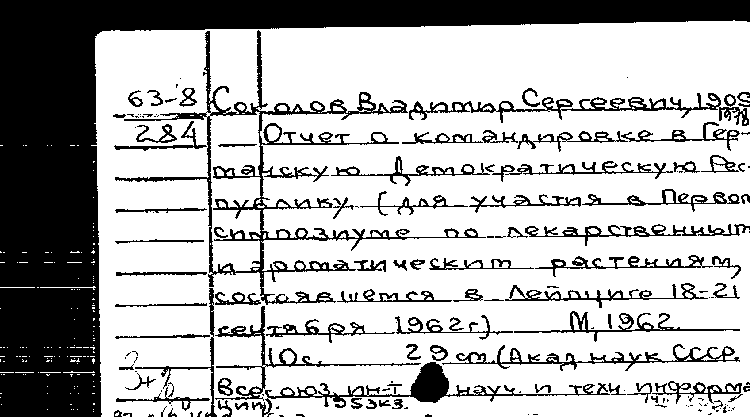 63-8 Соколов, Владимир Сергеевич, 1905
1978
284 Отчет о командировке в Гер-
манскую Демократическую Рес-
публику. (для участия в Первом
симпозиуме по лекарственным
и ароматическим растениям,
состоявшемся в Лейпциге 18-21
сентября 1962г). М, 1962.
10с. 29 см. (Акад наук СССР.
Всесоюз. ин-т науч. и техн информа
ции). 195экз.